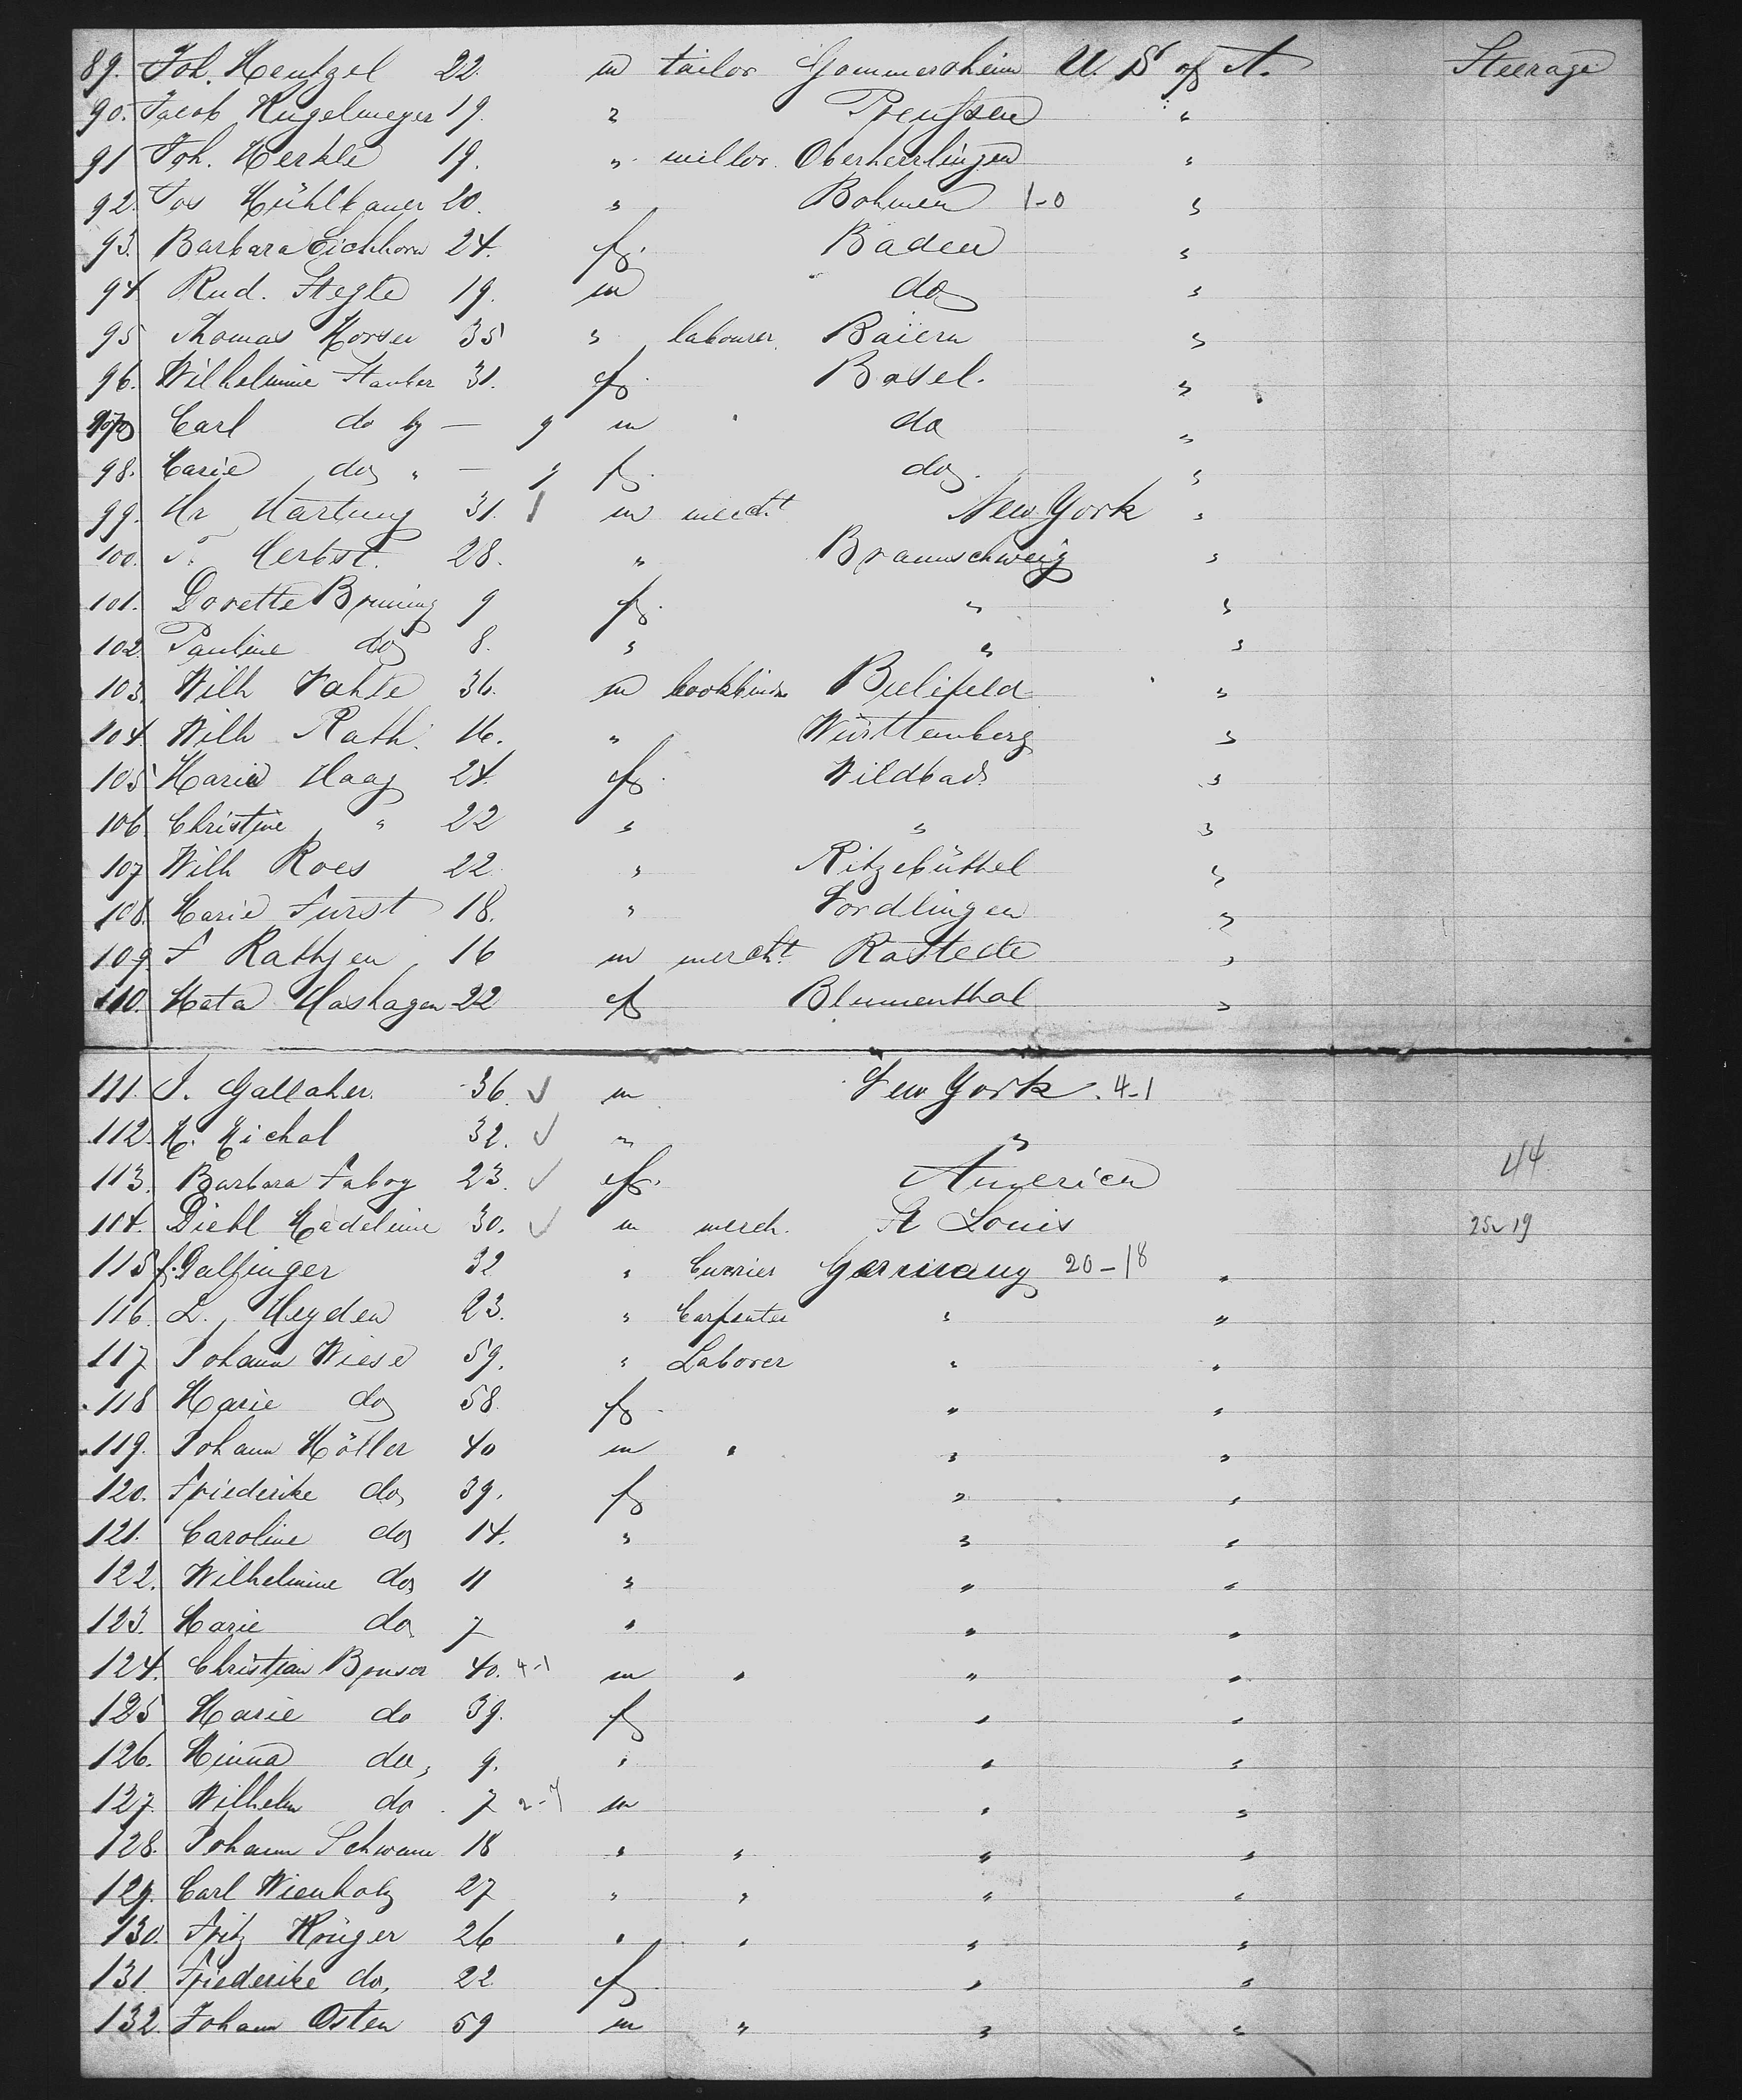 89. Joh. Hentzel 22. m tailor Gommersheim U. S of A. Steerage
90. Jacob Kugelmeyer 19. " Preußen "
91 Joh. Merkle 19. " miller. Oberherrlingen "
92. Jos Mühlbauer 20. " Bohmen 1-0 "
93. Barbara Eichhorn 24. f. Baden "
94 Rud. Stegle 19. m do "
95 Thomas Morser 35 " labourer. Baiern "
96. Wilhelmine Stauber 31. f. Basel. "
97 Carl do by — 9 m do "
98. Marie do " — 9 f. do. "
99. Hr Hartung 31. m mercht New York "
100. F. Herbst. 28. " Braunschweig "
101. Dorette Bruning 9 f. " "
102. Pauline do 8. " " "
103. Wilh Vahle 36. m bookbinder Bielifeld "
104. Wilh Rath. 16. " Württemberg "
105 Marie Haag 24. f. Wildbad. "
106. Christine " 22 " " "
107 Wilh Roes 22. " Ritzebüttel "
108. Marie Furst 18. " Nordlingen "
109 F Rathjen 16 m mercht. Rastede "
110. Meta Hashagen 22 f Blumenthal "
111. J. Gallaher. 36. ✓ m New York. 4-1
112. M. Michal 32. ✓ " "
113. Barbara Fabog 23. ✓ f. America 44
114. Diehl Madeleine 30. ✓ m merch. St Louis 25 19
115 f. Galfinger 32 " Currier Germany 20-18 "
116. L. Heyden 23. " Carpenter " "
117 Johann Wiese 59. " Laborer " "
118 Marie do 58. f " "
119. Johann Möller 40 m " " "
120. Friederike do 39. f " "
121. Caroline do 14. " " "
122. Wilhelmine do 11 " " "
123. Marie do 7 " " "
124. Christian Bonser 40. 4-1 m " " "
125 Marie do 39. f " "
126. Minna do, 9. " " "
127. Wilhelm do 7 m " "
128. Johann Schwann 18 " " " "
129. Carl Wienholz 27 " " " "
130. Fritz Krüger 26 " " " "
131. Friederike do. 22 f " "
132. Johann Osten 59 m " " "